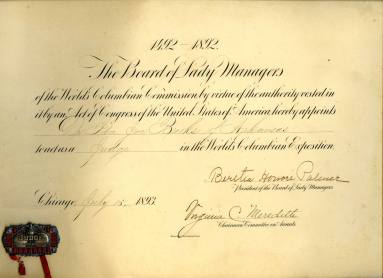 1492-1892.
The Board of Lady Managers
of the World's Columbian Commission by virtue of the authority vested in
it by an Act of Congress of the United States of America hereby appoints
of Arkansas
to act as a Judge in the World's Columbian Exposition.
Bertha Honoré Palmer
President of the Board of Lady Managers
Chicago July 15, 1893.
Virginia C. Meredith
Chairman Committee on Awards